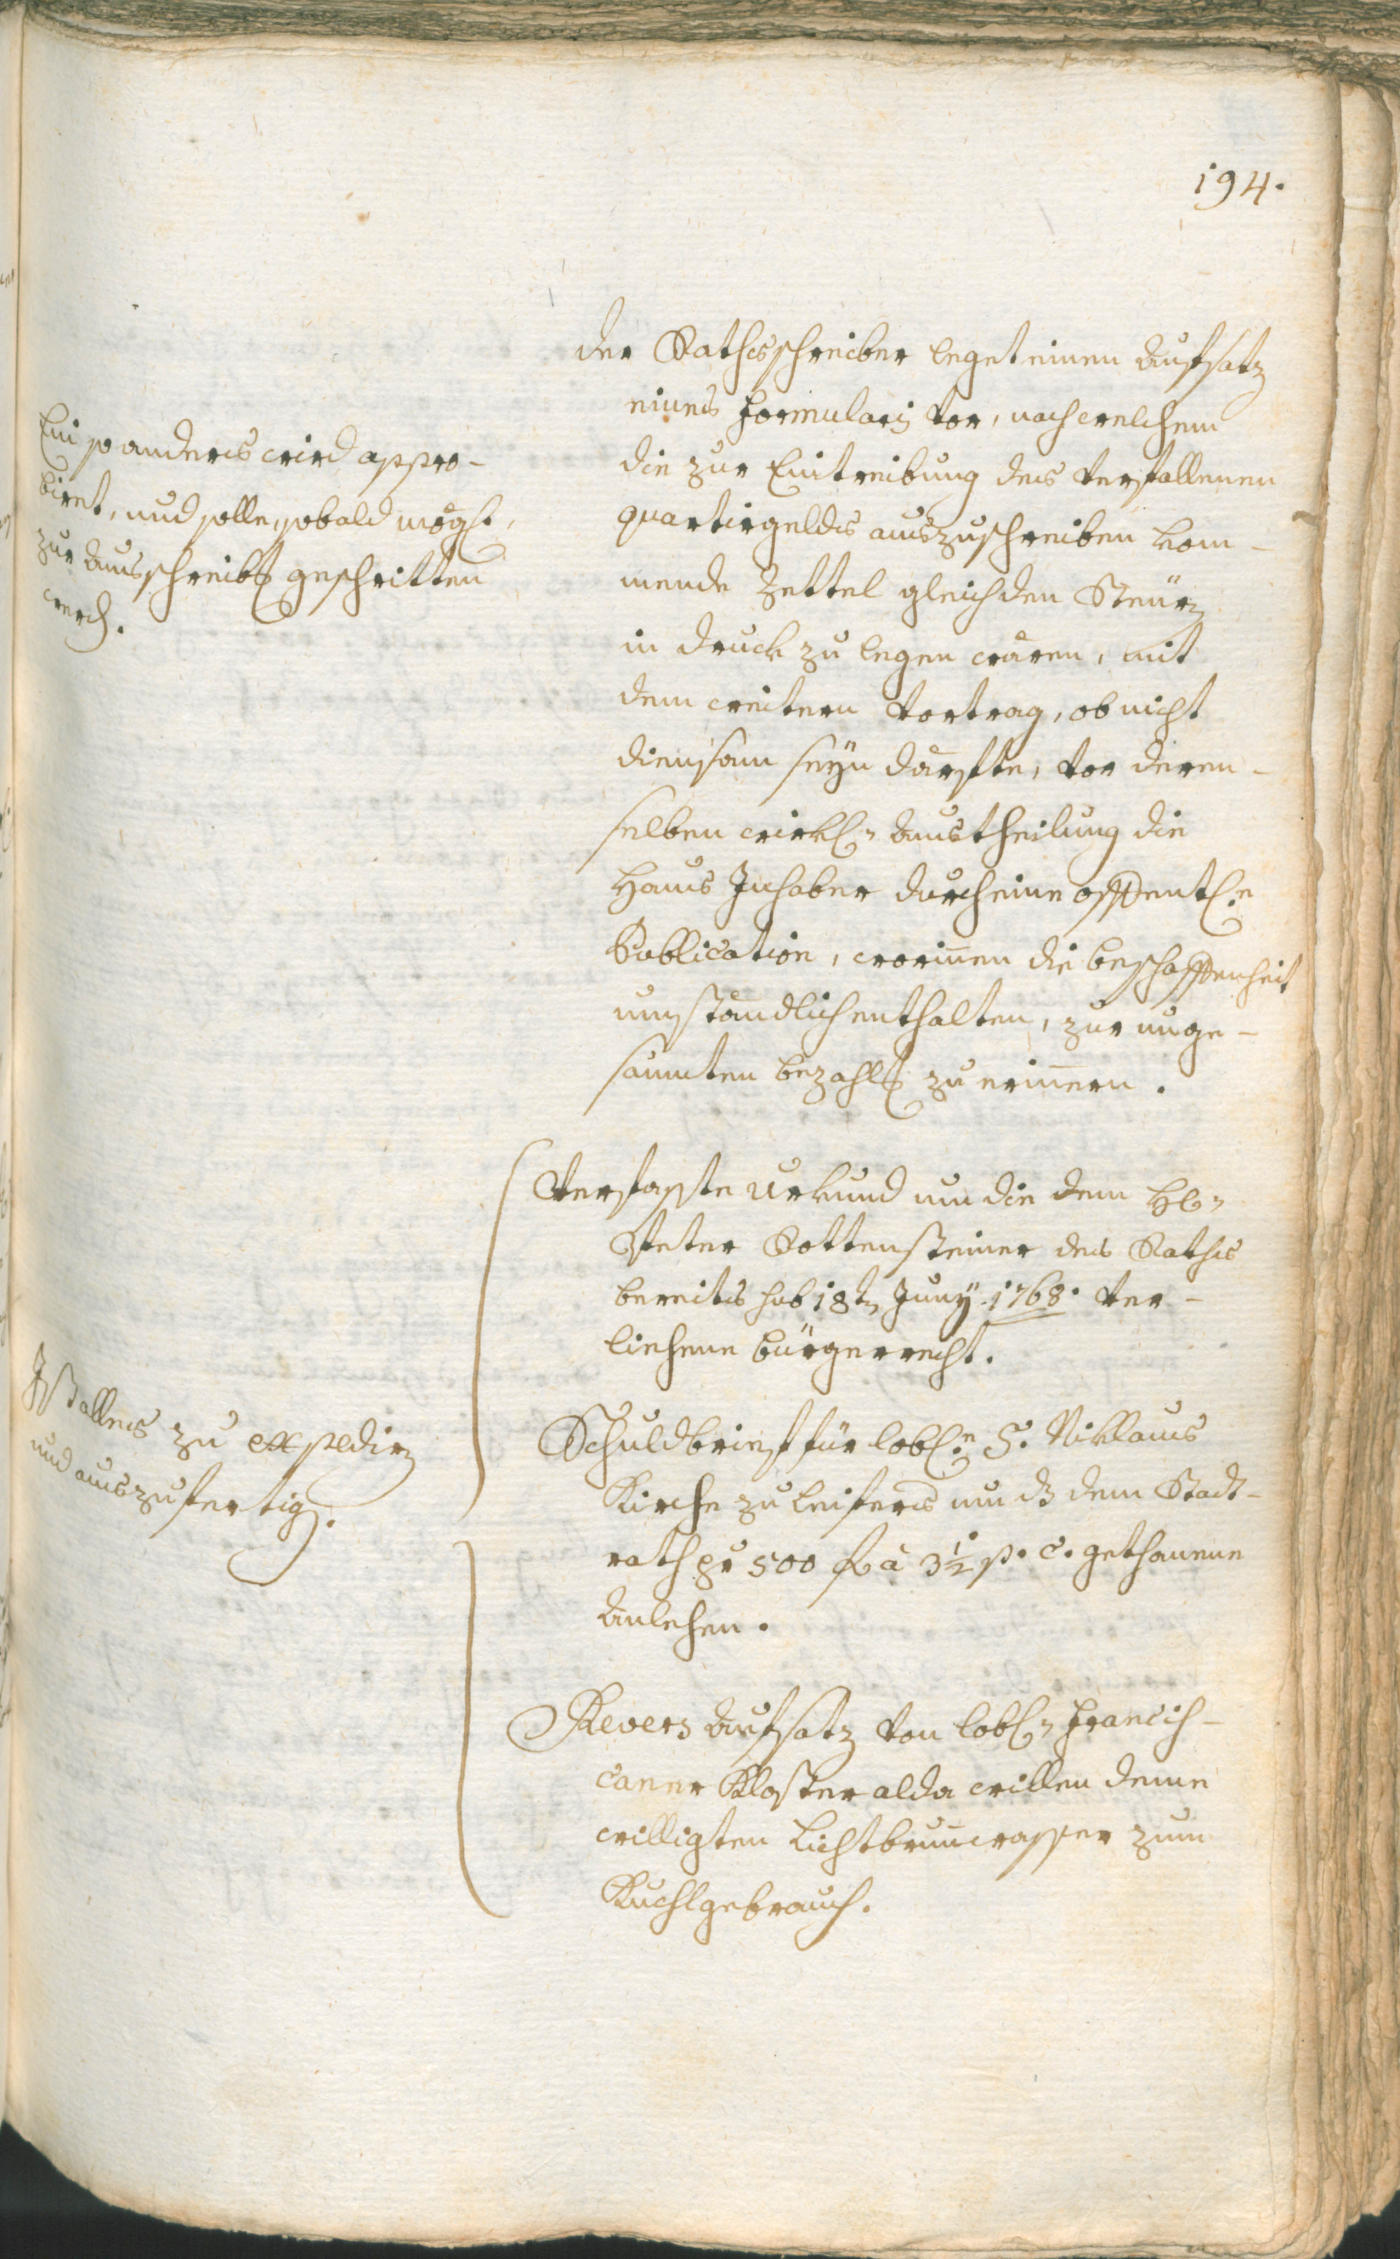 194.
der Rathsschreiber leget einen Aufsatz
eines Formularij vor, nach welchem
die zur Eintreibung des verfallenen
quartirgelds auszuschreiben kom-
mende Zettel gleich den Steürn
in druck zu legen wären, mit
dem weitern Vortrag, ob nicht
diensam seyn därfte, vor deren-
selben wirkl: Austheilung die
Haus Inhaber durch eine offentl:e
Publication, worinnen die beschaffenheit
umständlich enthalten, zur unge-
saumten bezahlg zu erinnern.
Ein so anders wird appro-
biret, und solle, sobald mögl:
zur Ausschreibg geschritten
werd.
Verfasste Urkund um die dem H:
Peter Rottensteiner des Raths
bereits sub 18t Juny 1768. ver-
liehene bürgerrecht.
Schuldbrief für lobl:e S. Niklaus
Kirche zu Leifers um ds dem Stadt-
rath pr 500 f à 3½ p. c. gethanene
Anlehen.
Revers Aufsatz von lobl: Francis-
caner Kloster alda willen deme
willigten Lichtbrunwasser zum
Kuchlgebrauch.
Ist alles zu expedirn
und auszufertig.